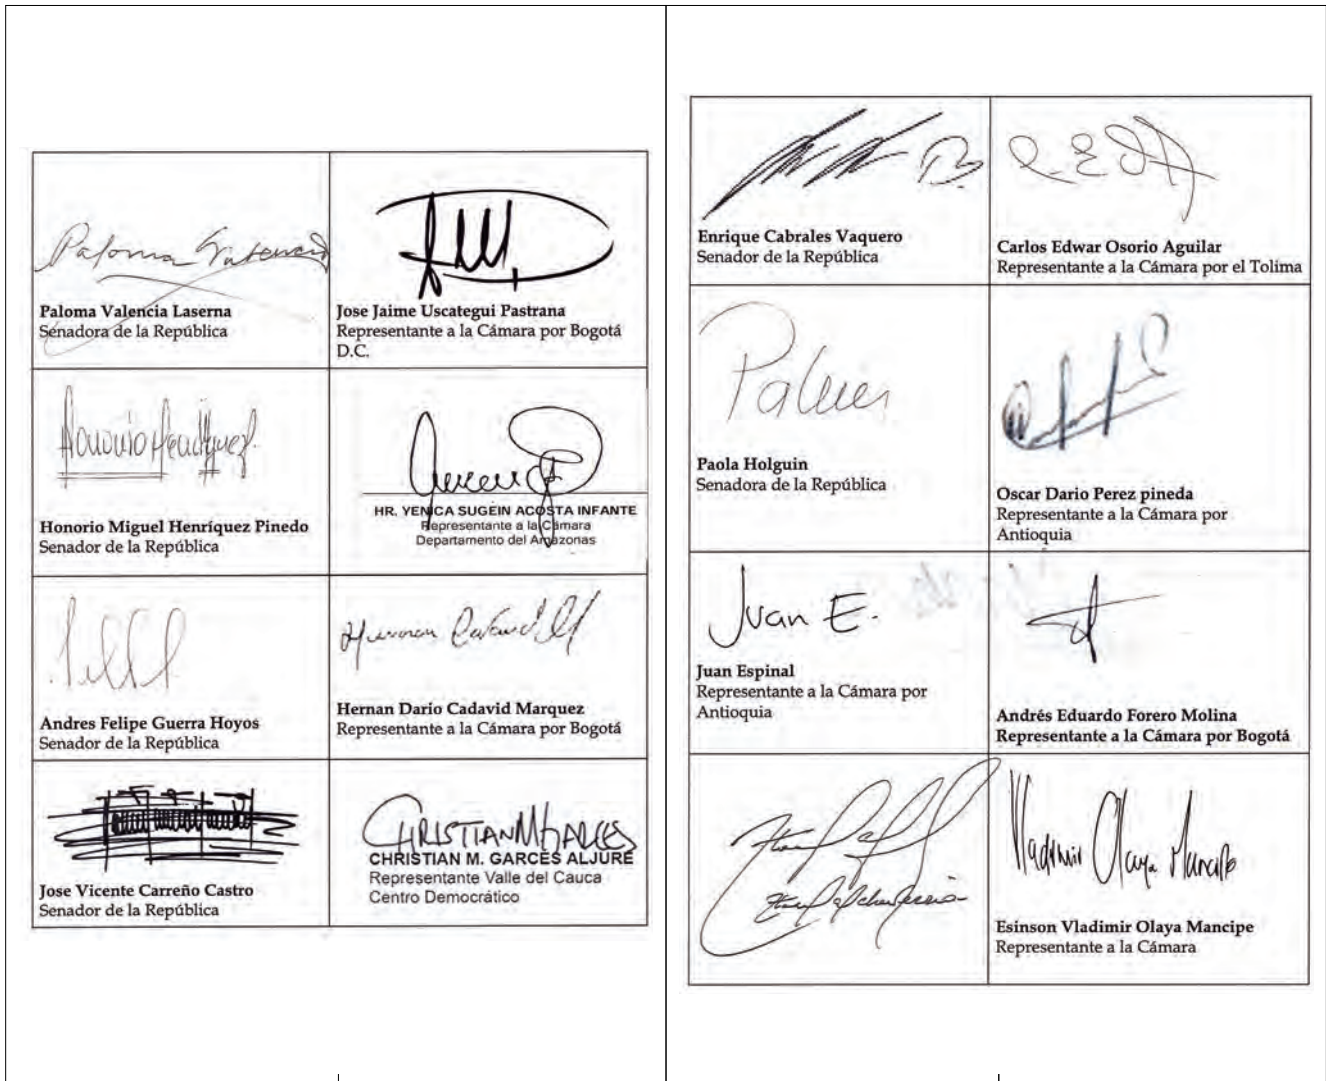 Paloma Valencia
Paloma Valencia Laserna
Senadora de la República
Jose Jaime Uscategui Pastrana
Representante a la Cámara por Bogotá
D.C.
Honorio Henríquez
Honorio Miguel Henríquez Pinedo
Senador de la República
HR. YENICA SUGEIN ACOSTA INFANTE
Representante a la Cámara
Departamento del Amazonas
Andres Felipe Guerra Hoyos
Senador de la República
Hernan Cadavid M
Hernan Dario Cadavid Marquez
Representante a la Cámara por Bogotá
Jose Vicente Carreño Castro
Senador de la República
CHRISTIAN M GARCES
CHRISTIAN M. GARCÉS ALJURE
Representante Valle del Cauca
Centro Democrático
Enrique Cabrales Vaquero
Senador de la República
Carlos Edwar Osorio Aguilar
Representante a la Cámara por el Tolima
Paola Holguin
Senadora de la República
Oscar Dario Perez pineda
Representante a la Cámara por
Antioquia
Juan E.
Juan Espinal
Representante a la Cámara por
Antioquia
Andrés Eduardo Forero Molina
Representante a la Cámara por Bogotá
Vladimir Olaya Mancipe
Esinson Vladimir Olaya Mancipe
Representante a la Cámara